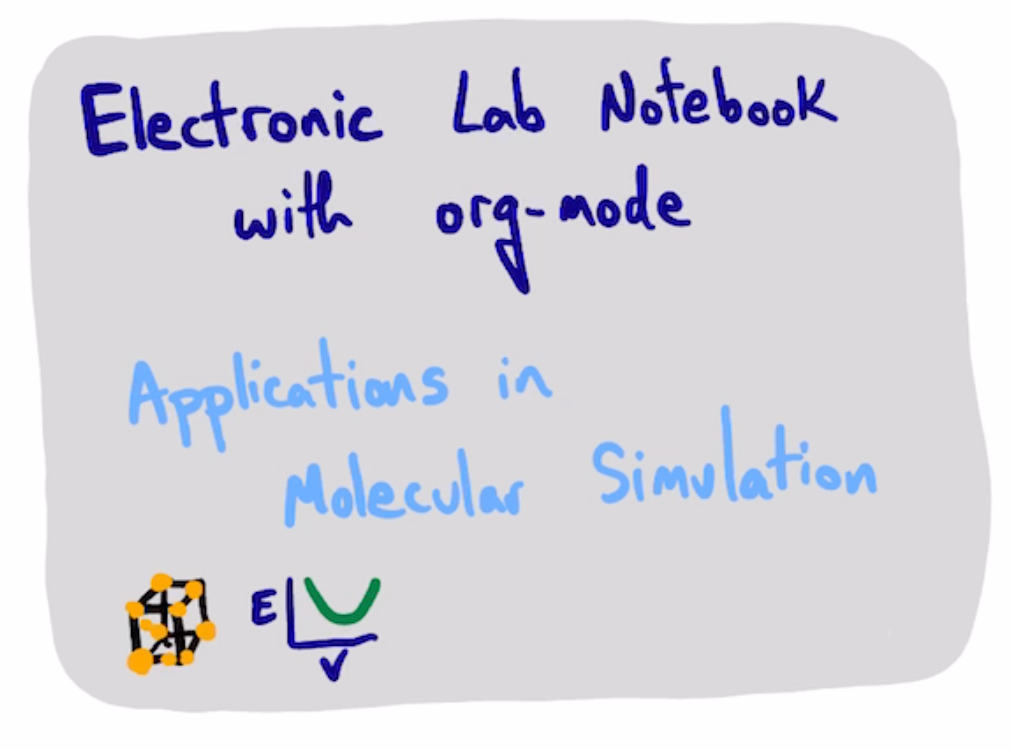 Electronic Lab Notebook
with org-mode
Applications in
Molecular Simulation
E
V